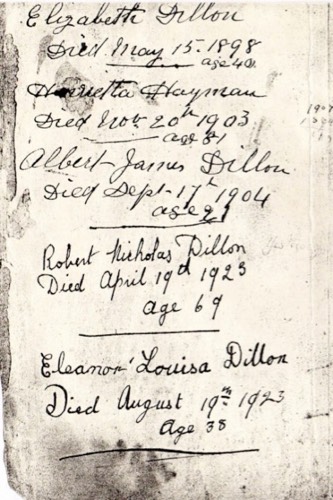 Elizabeth Dillon
Died May 15. 1898
age 40
Henrietta Hayman
Died Nov 20th 1903
age 31
Albert James Dillon
Died Sept 17th 1904
age 21
Robert Nicholas Dillon
Died April 19th 1923
Age 69
Eleanor Louisa Dillon
Died August 19th 1923
Age 38